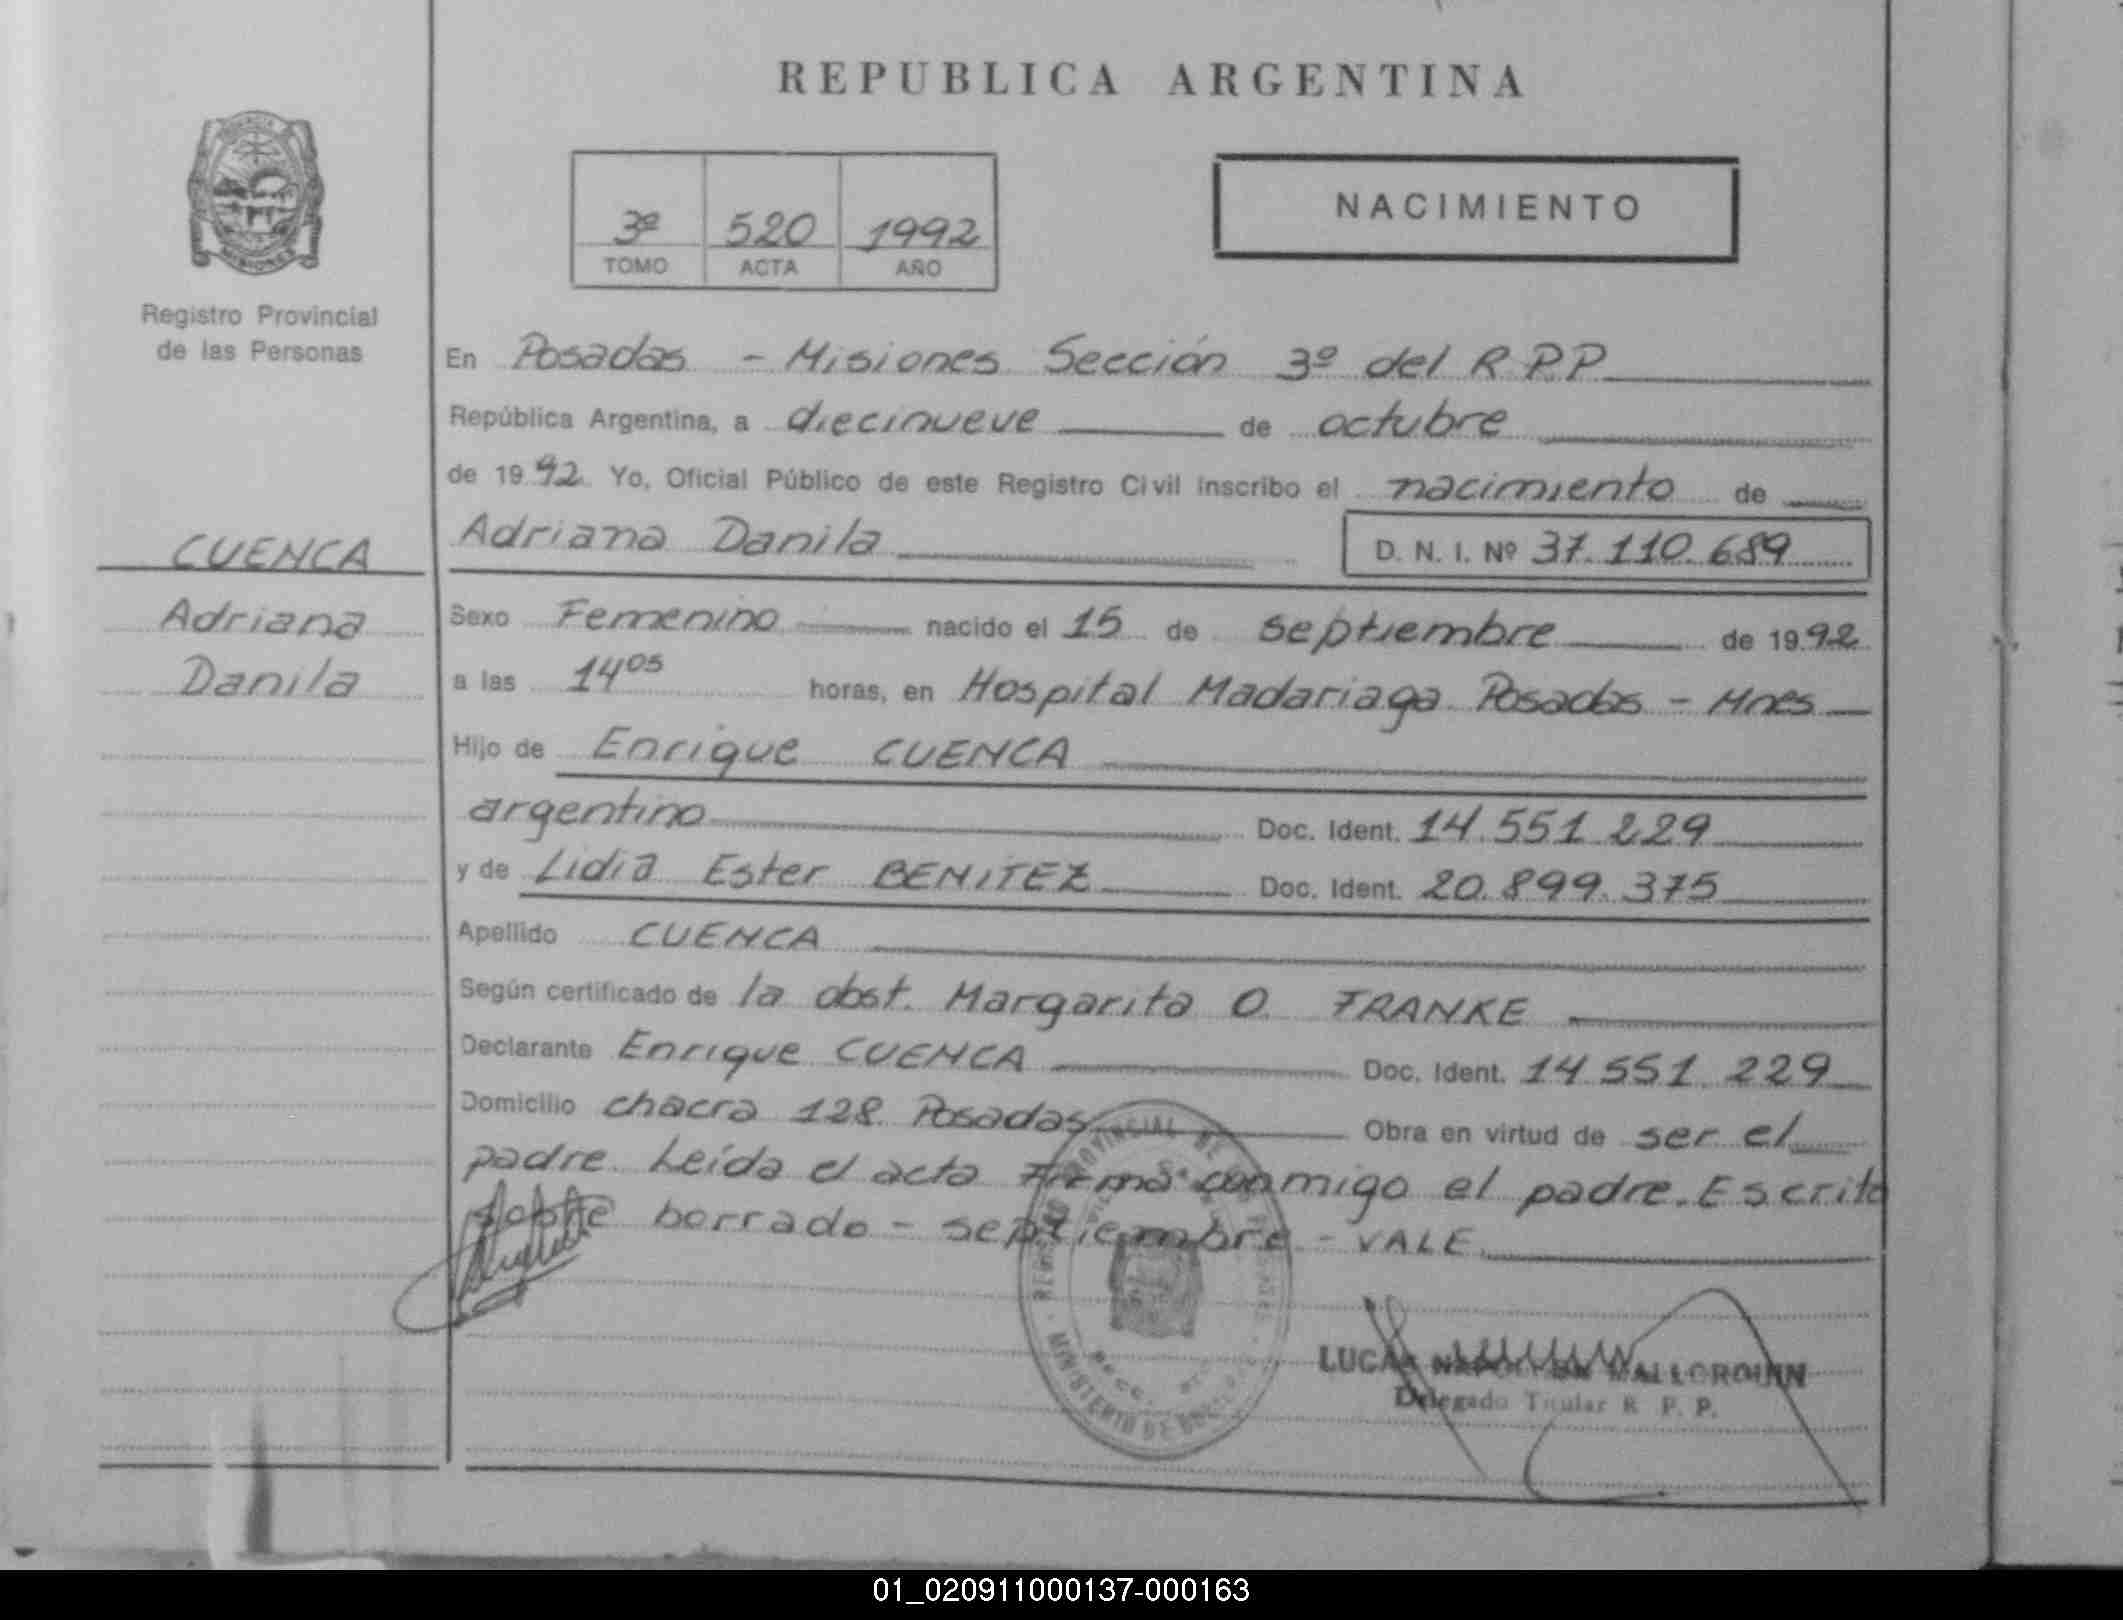 REPUBLICA ARGENTINA
PROVINCIA DE
MISIONES
Registro Provincial
de las Personas
3º 520 1992
TOMO ACTA AÑO
NACIMIENTO
En Posadas - Misiones Sección 3º del R.P.P
República Argentina, a diecinueve de octubre
de 1992 Yo, Oficial Público de este Registro Civil inscribo el nacimiento de
CUENCA
Adriana
Danila
Adriana Danila D. N. I. Nº 37.110.689
Sexo Femenino nacido el 15 de septiembre de 1992
a las 14 05 horas, en Hospital Madariaga Posadas - Mnes
Hijo de Enrique CUENCA
argentino Doc. Ident. 14.551.229
y de Lidia Ester BENITEZ Doc. Ident. 20.899.375
Apellido CUENCA
Según certificado de la obst. Margarita O. FRANKE
Declarante Enrique CUENCA Doc. Ident. 14.551.229
Domicilio chacra 128 Posadas Obra en virtud de ser el
padre. Leída el acta Firma conmigo el padre. Escrito
sobre borrado - septiembre - VALE
REGISTRO PROVINCIAL DE LAS
MINISTERIO DE
LUCAS MALLORQUIN
Delegado Titular R. P. P.
01_020911000137-000163